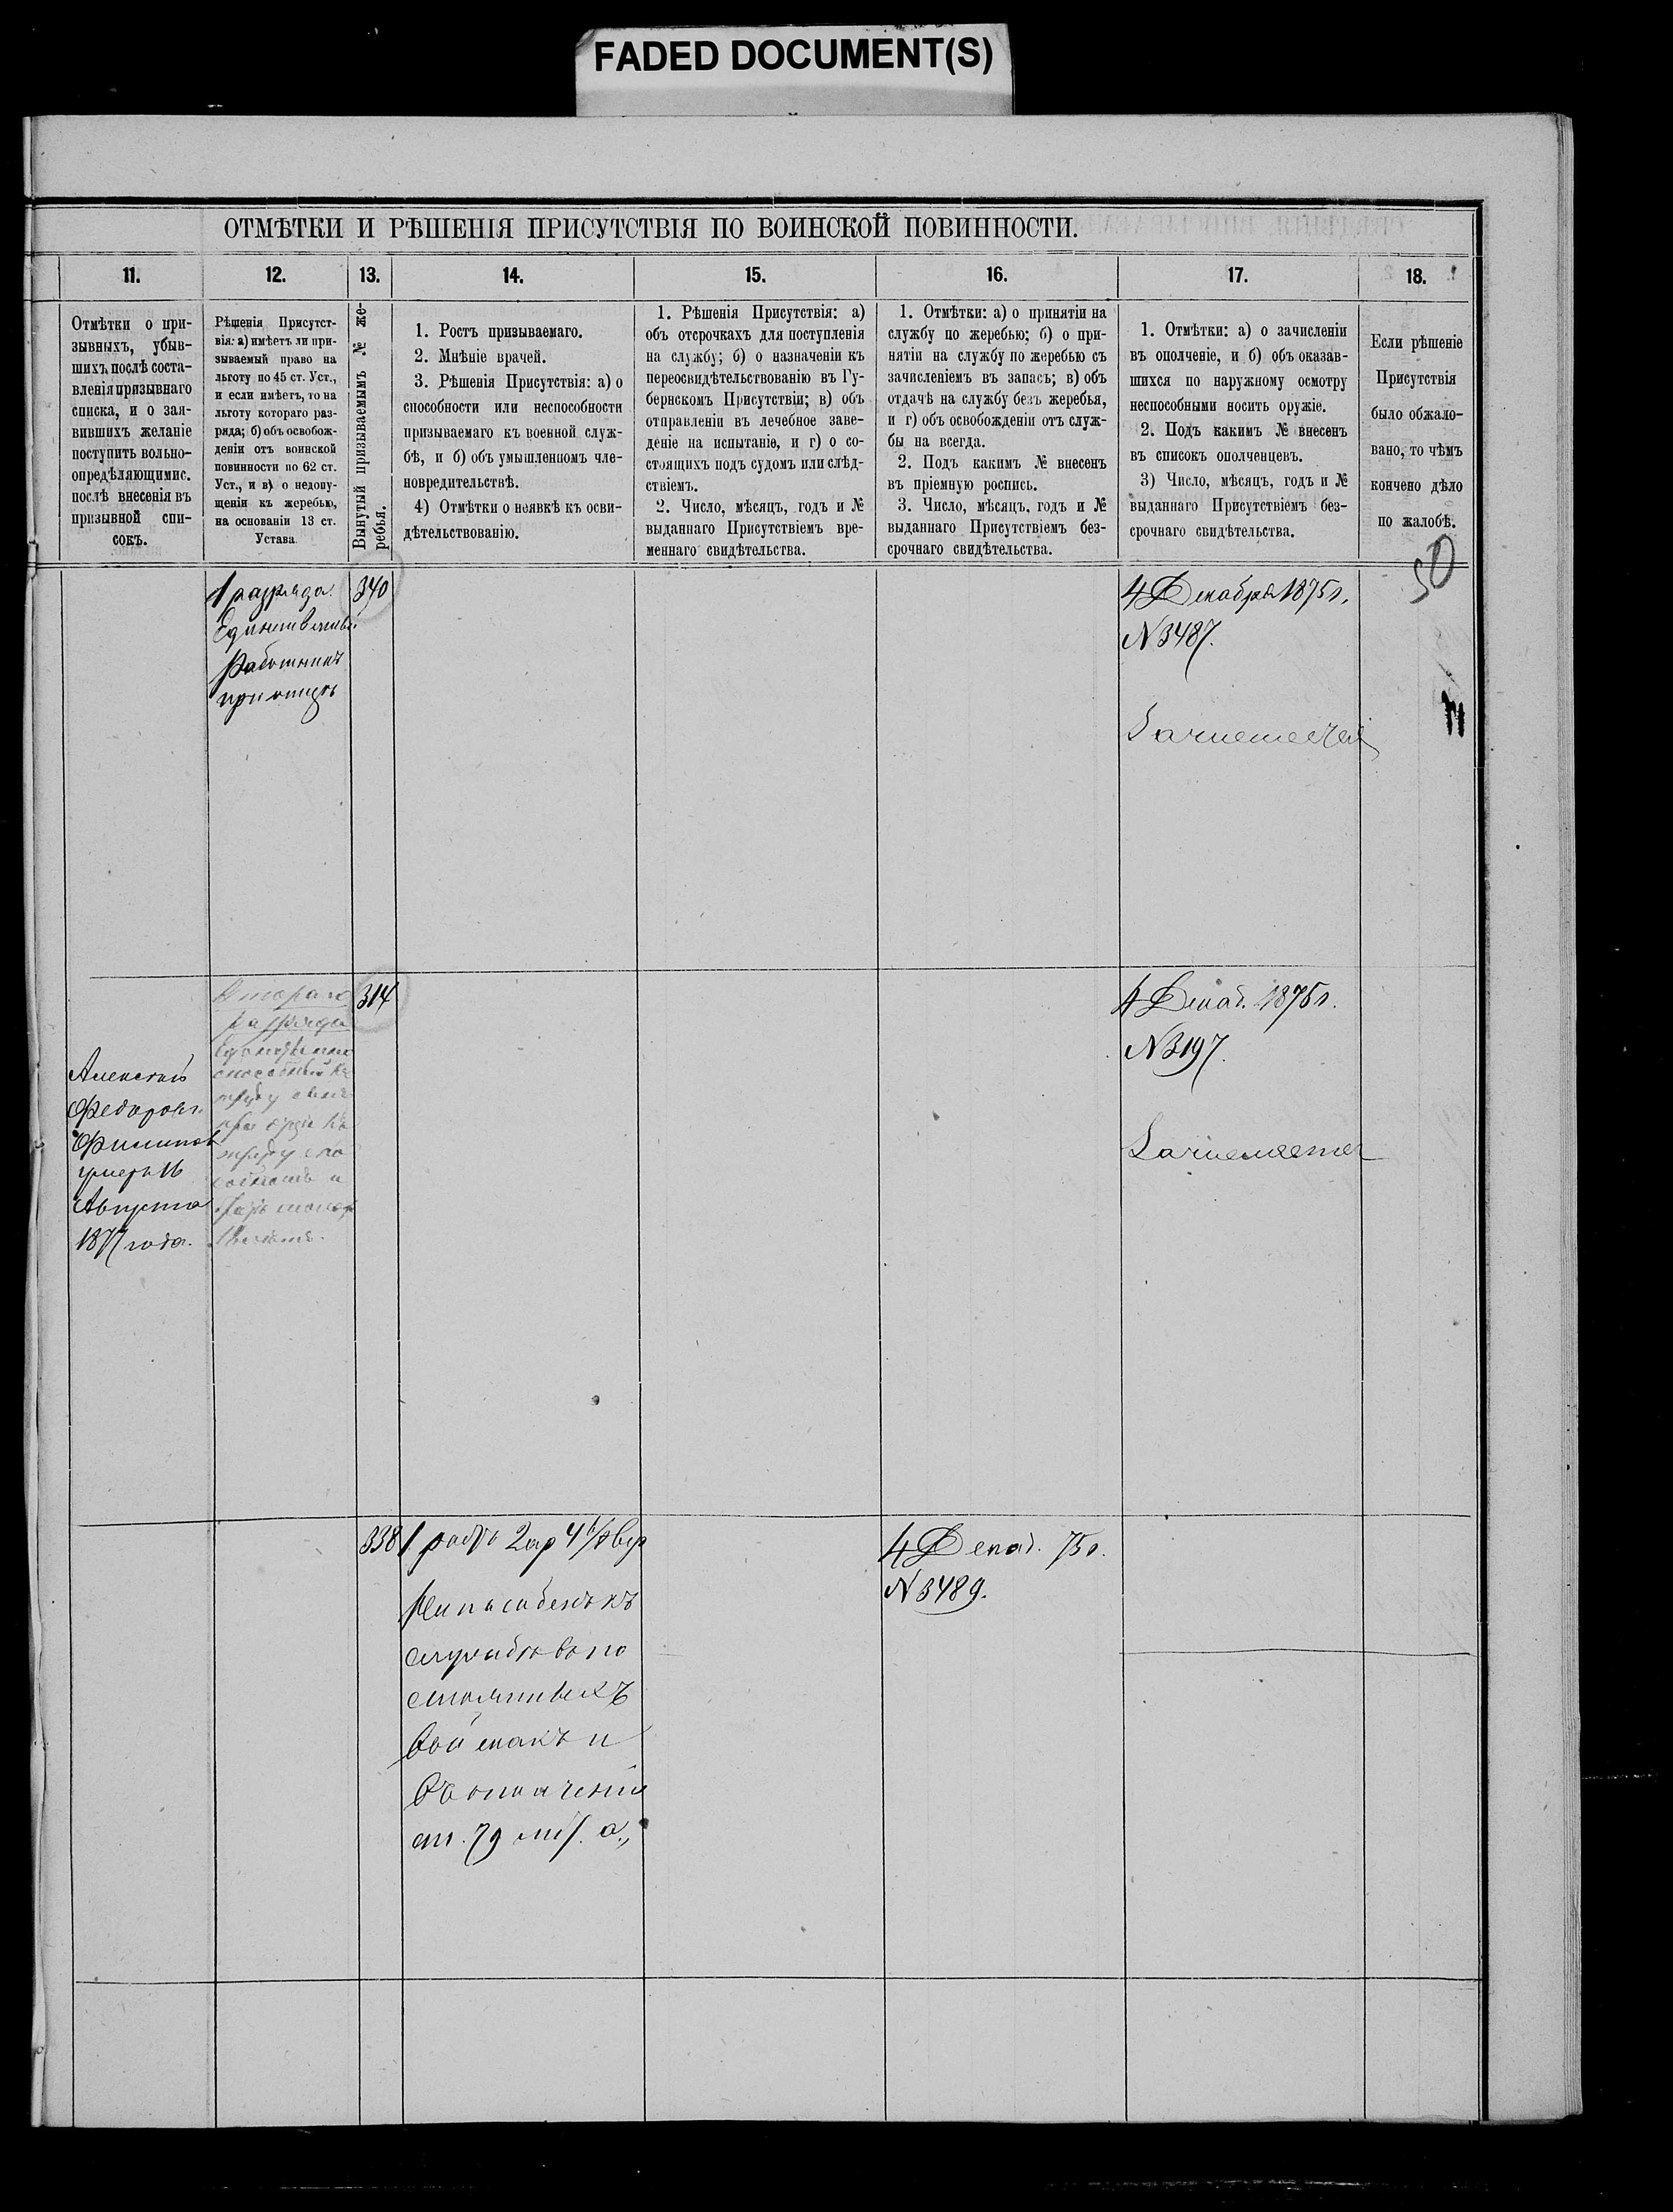 FADED DOCUMENT(S)
ОТМѢТКИ И РѢШЕНІЯ ПРИСУТСТВІЯ ПО ВОИНСКОЙ ПОВИННОСТИ.
11.
12.
13.
14.
15.
16.
17.
18.
Отмѣтки о при-
зывныхъ, убыв-
шихъ послѣ соста-
вленія призывнаго
списка, и о зая-
вившихъ желаніе
поступить вольно-
опредѣляющимис.
послѣ внесенія въ
призывной спи-
сокъ.
Рѣшенія Присутст-
вія: а) имѣетъ ли при-
зываемый право на
льготу по 45 ст. Уст.,
и если имѣетъ, то на
льготу котораго раз-
ряда; б) объ освобож-
деніи отъ воинской
повинности по 62 ст.
Уст., и в) о недопу-
щеніи къ жеребью,
на основаніи 13 ст.
Устава
Вынутый призываемымъ № же-
ребья.
1. Ростъ призываемаго.
2. Мнѣніе врачей.
3. Рѣшенія Присутствія: а) о
способности или неспособности
призываемаго къ военной служ-
бѣ, и б) объ умышленномъ чле-
новредительствѣ.
4) Отмѣтки о неявкѣ къ осви-
дѣтельствованію.
1. Рѣшенія Присутствія: а)
объ отсрочкахъ для поступленія
на службу; б) о назначеніи къ
переосвидѣтельствованію въ Гу-
бернскомъ Присутствіи; в) объ
отправленіи въ лечебное заве-
деніе на испытаніе, и г) о со-
стоящихъ подъ судомъ или слѣд-
ствіемъ.
2. Число, мѣсяцъ, годъ и №
выданнаго Присутствіемъ вре-
меннаго свидѣтельства.
1. Отмѣтки: а) о принятіи на
службу по жеребью; б) о при-
нятіи на службу по жеребью съ
зачисленіемъ въ запасъ; в) объ
отдачѣ на службу безъ жеребья,
и г) объ освобожденіи отъ служ-
бы на всегда.
2. Подъ какимъ № внесенъ
въ пріемную роспись.
3. Число, мѣсяцъ, годъ и №
выданнаго Присутствіемъ без-
срочнаго свидѣтельства.
1. Отмѣтки: а) о зачисленіи
въ ополченіе, и б) объ оказав-
шихся по наружному осмотру
неспособными носить оружіе.
2. Подъ какимъ № внесенъ
въ списокъ ополченцевъ.
3) Число, мѣсяцъ, годъ и №
выданнаго Присутствіемъ без-
срочнаго свидѣтельства.
Если рѣшеніе
Присутствія
было обжало-
вано, то чѣмъ
кончено дѣло
по жалобѣ.
50
1 разряда
работникъ
при отцѣ
340
4 Декабря 1875 г.
N 3487.
Втораго
разряда
314
Алексѣй
Федоровъ
Филипов
умеръ 16
Августа
1877 года.
4 Декаб. 1875 г.
N 3197.
Зачисляется
338
1 ростъ 2 ар 4
Неспособенъ къ
службѣ въ по
стоянныхъ
войскахъ и
въ ополченіи
ст. 79
4 Декаб. 75 г.
N 3489.